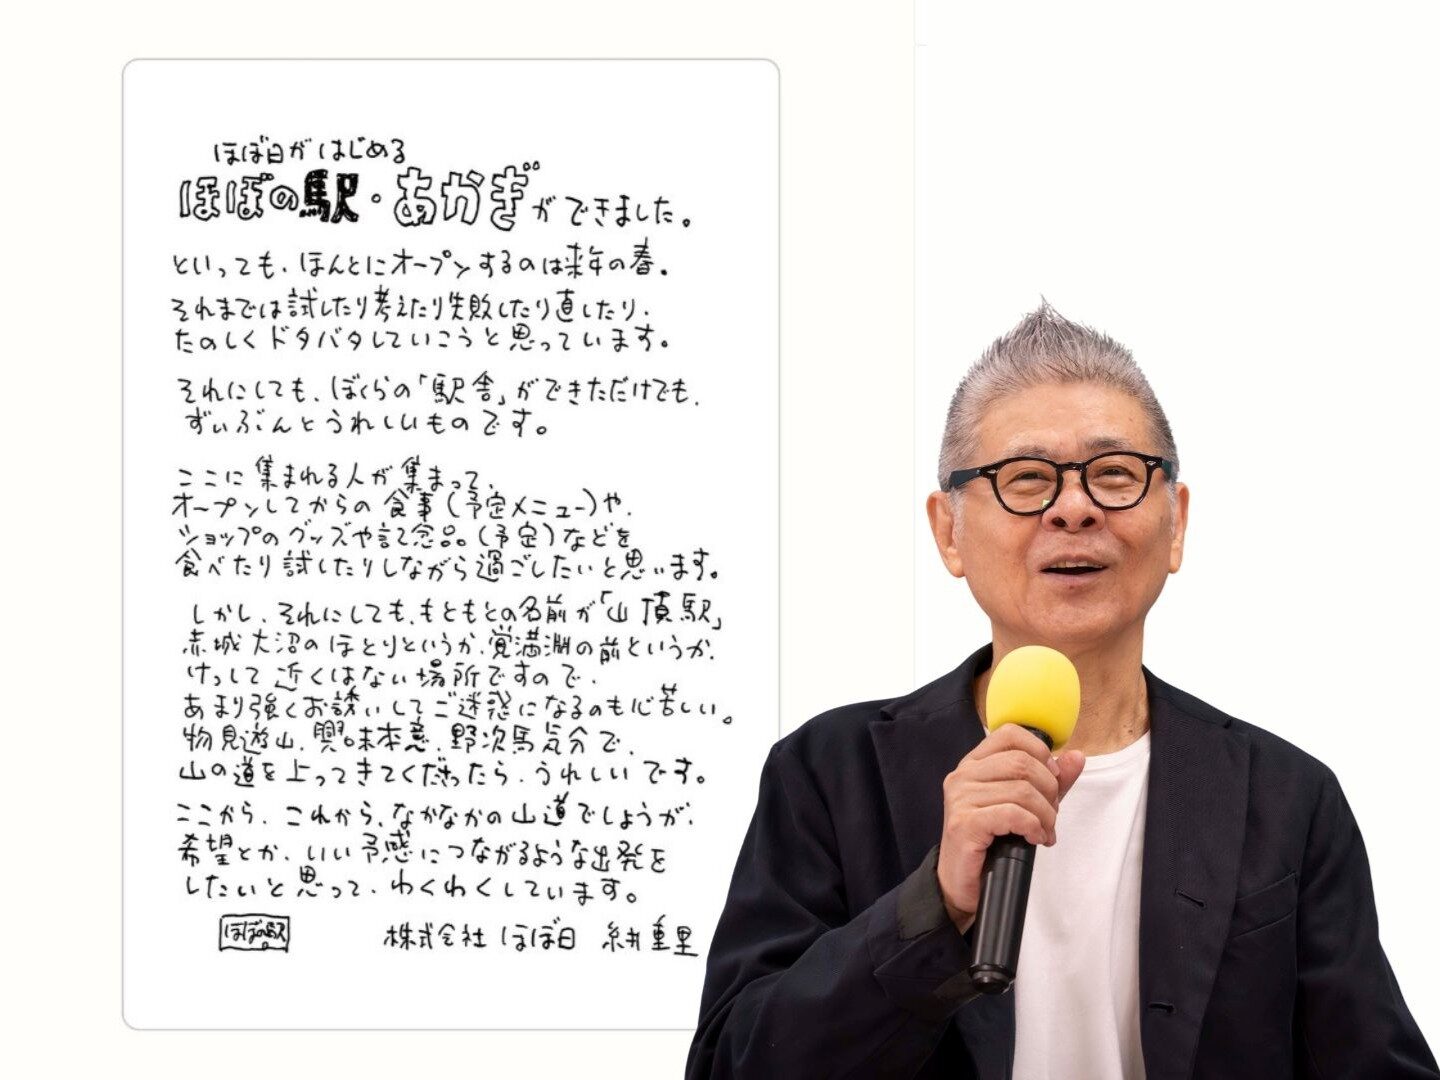 ほぼ日がはじめる
ほぼの駅・あかぎができました。
といっても、ほんとにオープンするのは来年の春。
それまでは試したり考えたり失敗したり直したり、
たのしくドタバタしていこうと思っています。
それにしても、ぼくらの「駅舎」ができただけでも、
ずいぶんとうれしいものです。
ここに集まれる人が集まって、
オープンしてからの食事(予定メニュー)や、
ショップのグッズや記念品(予定)などを
食べたり試したりしながら過ごしたいと思います。
しかし、それにしても、もともとの名前が「山頂駅」
赤城大沼のほとりというか、覚満淵の前というか、
けっして近くはない場所ですので、
あまり強くお誘いしてご迷惑になるのも心苦しい。
物見遊山、興味本意、野次馬気分で、
山の道を上ってきてくださったら、うれしいです。
ここから、これから、なかなかの山道でしょうが、
希望とか、いい予感につながるような出発を
したいと思って、わくわくしています。
ほぼの駅 株式会社 ほぼ日 糸井重里